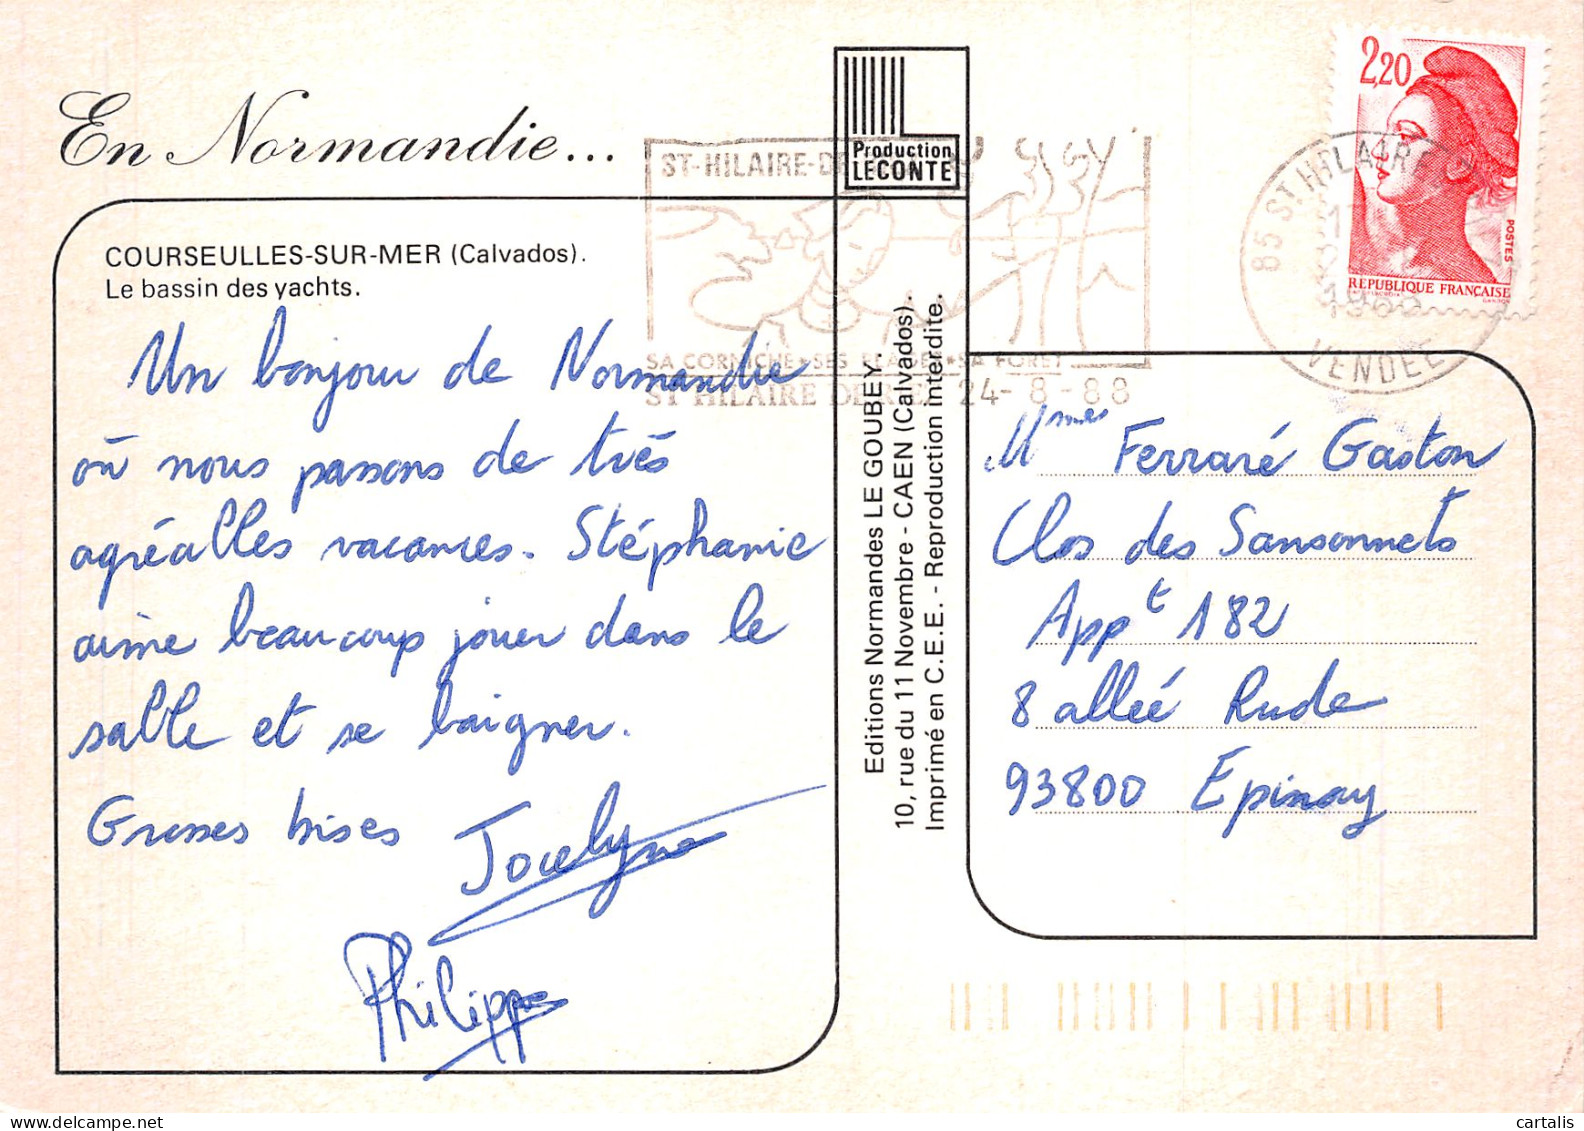 En Normandie...
COURSEULLES-SUR-MER (Calvados).
Le bassin des yachts.
Un bonjour de Normandie
où nous passons de très
agréalles vacances. Stéphanie
aime beaucoup jouer dans le
salle et se baigner.
Grosses bises Jocelyne
Philippe
Production
LECONTE
Editions Normandes LE GOUBEY
10, rue du 11 Novembre - CAEN (Calvados).
Imprimé en C.E.E. - Reproduction interdite.
ST-HILAIRE-DE
SA CORNICHE • SES PLAGES • SA FORET
ST HILAIRE DE RIEZ 24-8-88
85 ST HILAIRE
1988
VENDEE
2,20
POSTES
REPUBLIQUE FRANÇAISE
Mme Ferraré Gaston
Clos des Sansonnets
Appt 182
8 allée Rude
93800 Epinay
cartalis